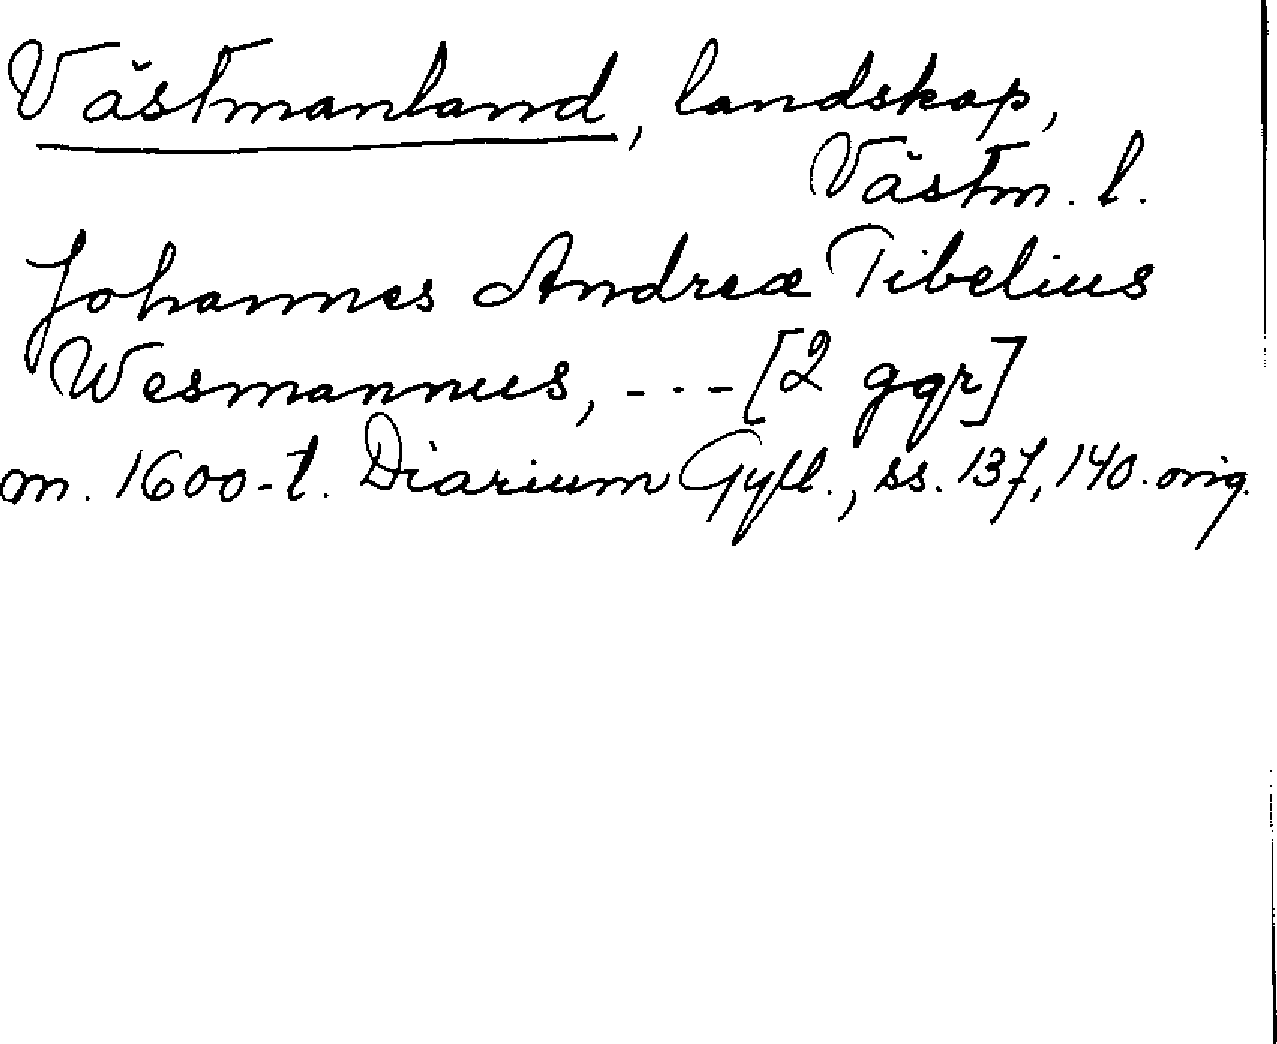 Västmanland, landskap,
Västm. l.
Johannes Andreæ Tibelius
Wesmannus, - - - [2 ggr]
m. 1600-t. Diarium Gyll., ss. 137, 140. orig.